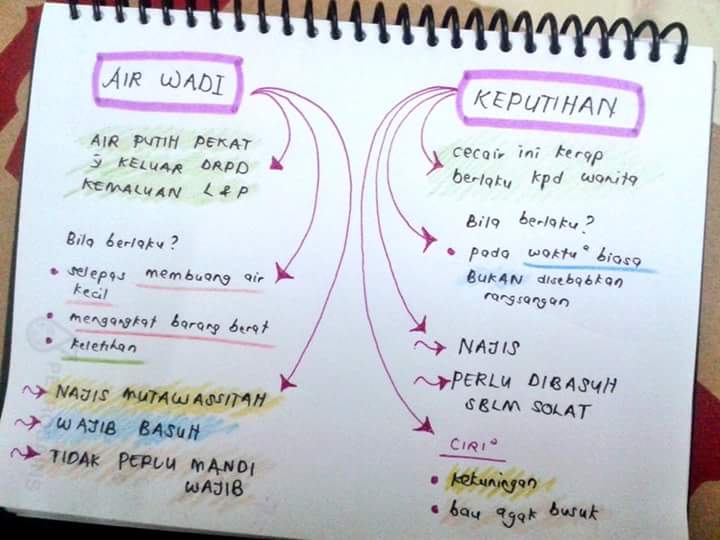 AIR WADI
AIR PUTIH PEKAT
yg KELUAR DRPD
KEMALUAN L & P
Bila berlaku?
• selepas membuang air
kecil
• mengangkat barang berat
• keletihan
NAJIS MUTAWASSITAH
WAJIB BASUH
TIDAK PERLU MANDI
WAJIB
KEPUTIHAN
cecair ini kerap
berlaku kpd wanita
Bila berlaku?
• pada waktu² biasa
BUKAN disebabkan
rangsangan
NAJIS
PERLU DIBASUH
SBLM SOLAT
CIRI²
• kekuningan
• bau agak busuk